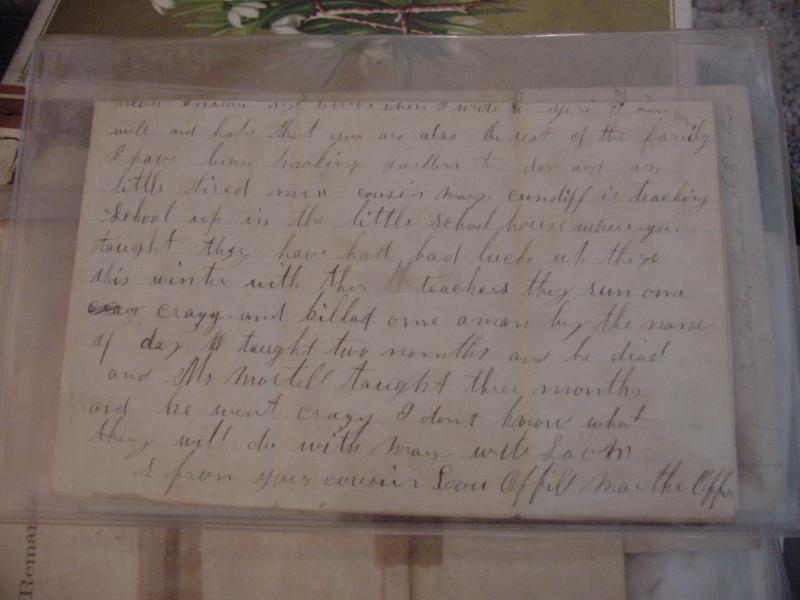 when I write
well and hope that you are also the rest of the family
I have been making garden to day and am
little tired now cousin may cundiff is teaching
School up in the little school house where you
taught they have had bad luck up there
this winter with ther teachers they run one
crazy crazy and killad one a man by the name
of day taught two months and he diad
and Ms Martell taught three months
and he went crazy I dont know what
they will do with may write Soon
from your cousin Lou Offill
Remar